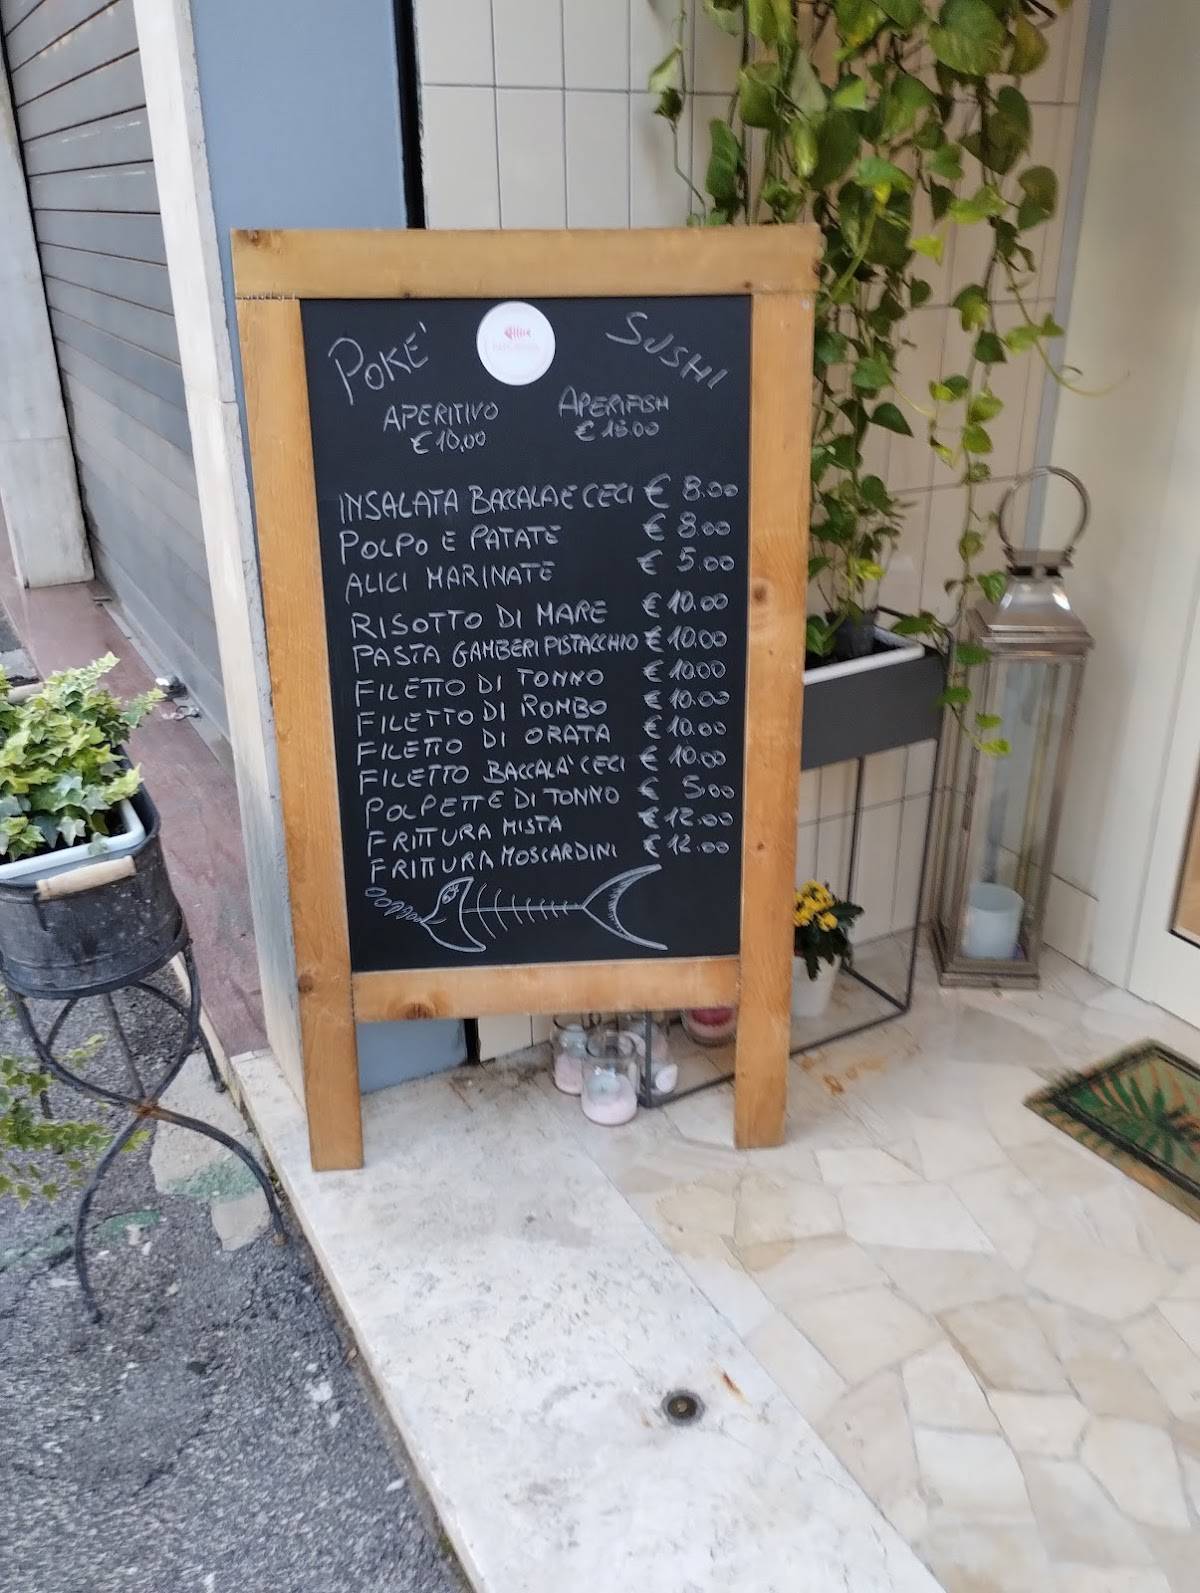 POKÉ
SUSHI
APERITIVO
€ 10,00
APERIFISH
€ 15.00
INSALATA BACCALA E CECI € 8.00
POLPO E PATATE € 8.00
ALICI MARINATE € 5.00
RISOTTO DI MARE € 10.00
PASTA GAMBERI PISTACCHIO € 10.00
FILETTO DI TONNO € 10.00
FILETTO DI ROMBO € 10.00
FILETTO DI ORATA € 10.00
FILETTO BACCALA' CECI € 10.00
POLPETTE DI TONNO € 5,00
FRITTURA MISTA € 12.00
FRITTURA MOSCARDINI € 12.00